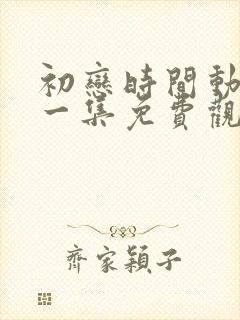 初戀時間動
一集免費觀
齊家穎子